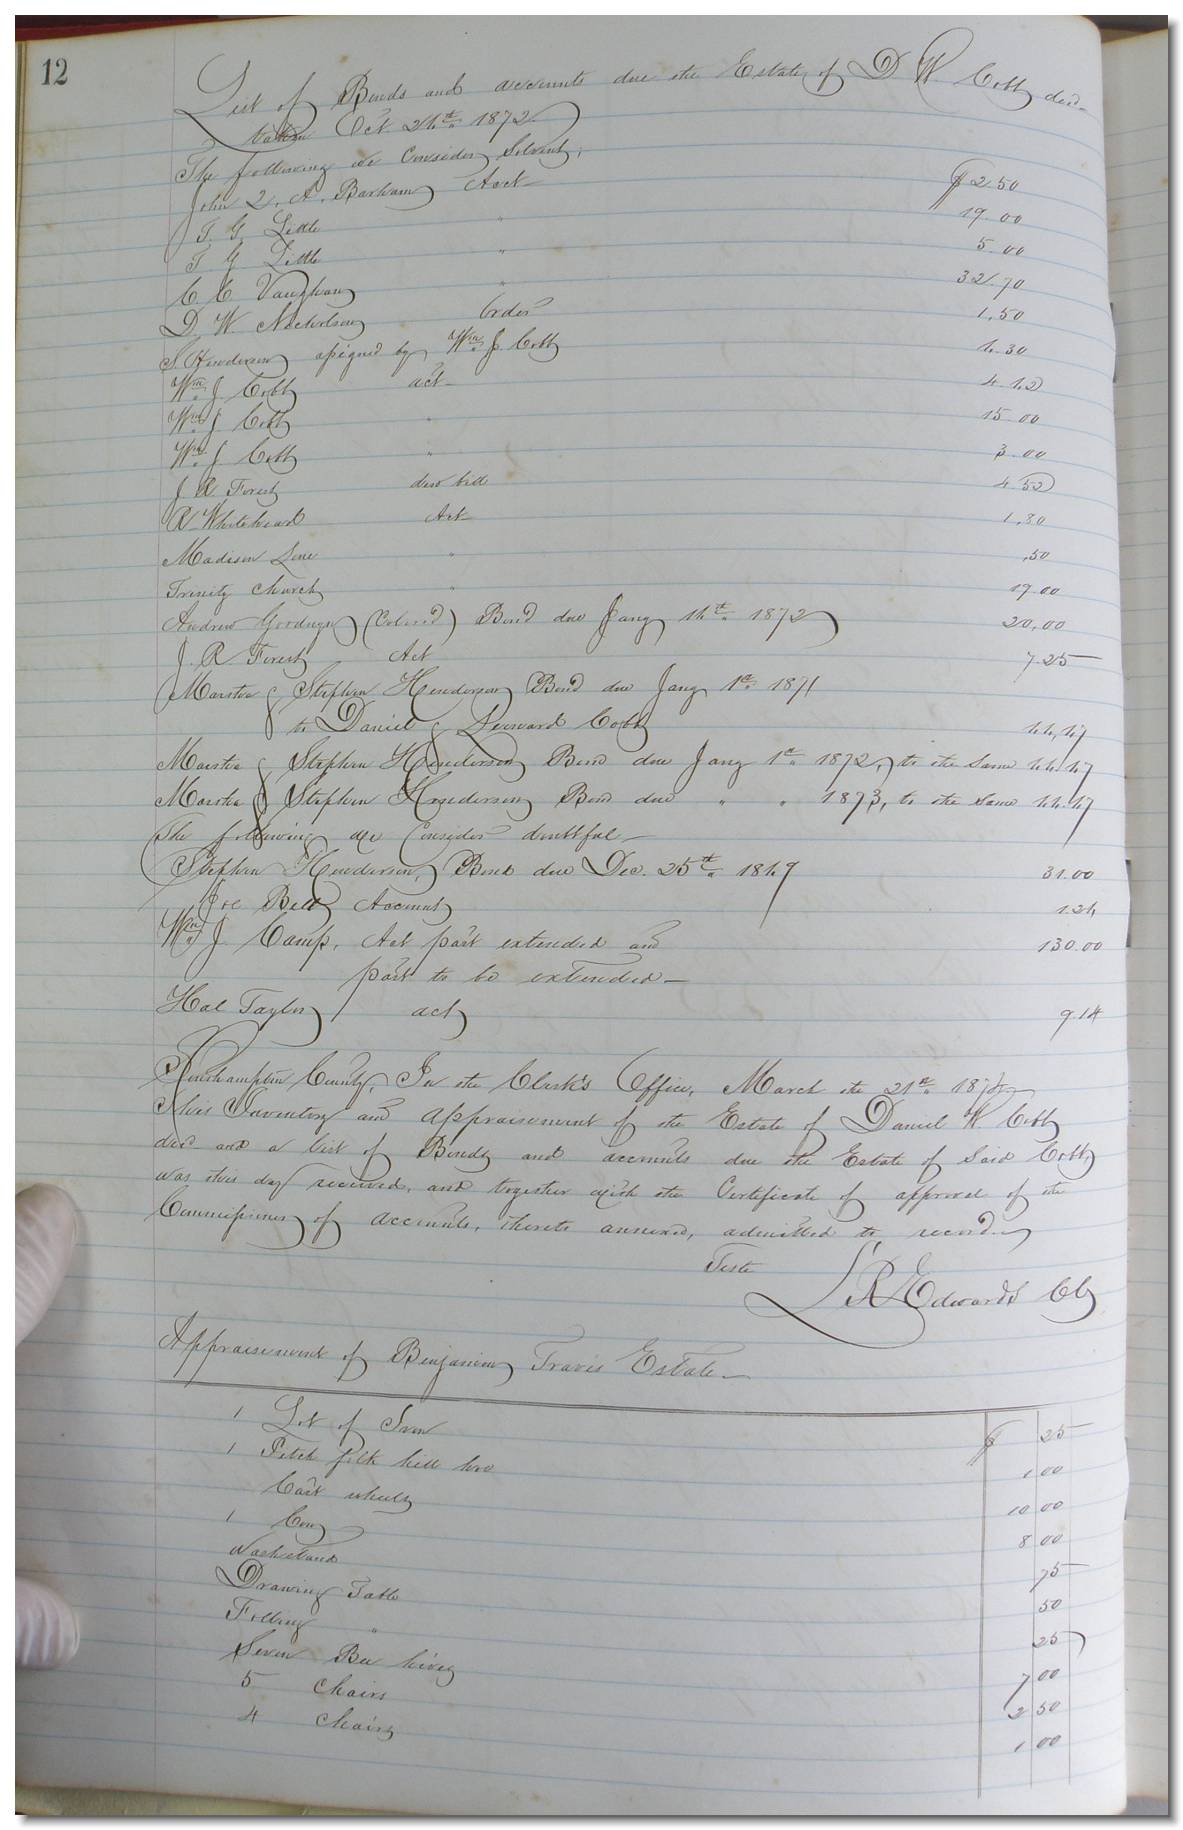 12
List of Bonds and accounts due the Estate of D W Cobb decd
taken Oct 24th 1872
The following we Consider Solvent;
John Q. A. Barham Acct $2.50
T. G. Little " 19.00
T G Little " 5.00
C. C. Vaughan " 32.70
D. W. Nicholson Order 1.50
S. Henderson assigned by Wm J. Cobb 4.30
Wm J Cobb act 4.42
Wm J Cobb " 15.00
Wm J Cobb " 3.00
J R Forest due bill 4.52
R Whitehead Act 1.80
Madison " .50
Trinity Church " 19.00
Andrew (Colored) Bond due Jany 14th 1872 20.00
J. R Forest Act 7.25
Marstra & Stephen Henderson Bond due Jany 1st 1871
to Daniel & Leonard Cobb 44.47
Marstra & Stephen Henderson Bond due Jany 1st 1872, to the Same 44.47
Marstra & Stephen Henderson Bond due " " 1873, to the Same 44.47
The following we Consider doubtful
Stephen Henderson, Bond due Dec. 25th 1849 31.00
Joe Bell Account 1.24
Wm J. Camp, Act part extended and 130.00
part to be extended
Hal Taylor act 9.14
Southampton County, In the Clerk's Office, March the 21st
This Inventory and Appraisement of the Estate of Daniel W. Cobb
decd and a list of Bonds and accounts due the Estate of Said Cobb,
was this day received, and together with the Certificate of approval of the
Commissioner of accounts, thereto annexed, admitted to record
Teste
L R Edwards Clk
Appraisement of Benjamin Travis Estate
1 Lot of Iron $ 25
1 Pitch fork hill hoe 1 00
Cart wheels 10 00
1 Cow 8 00
Washstand 75
Drawing Table 50
Folding " 25
Seven Bee hives 7 00
5 Chairs 2 50
4 Chairs 1 00